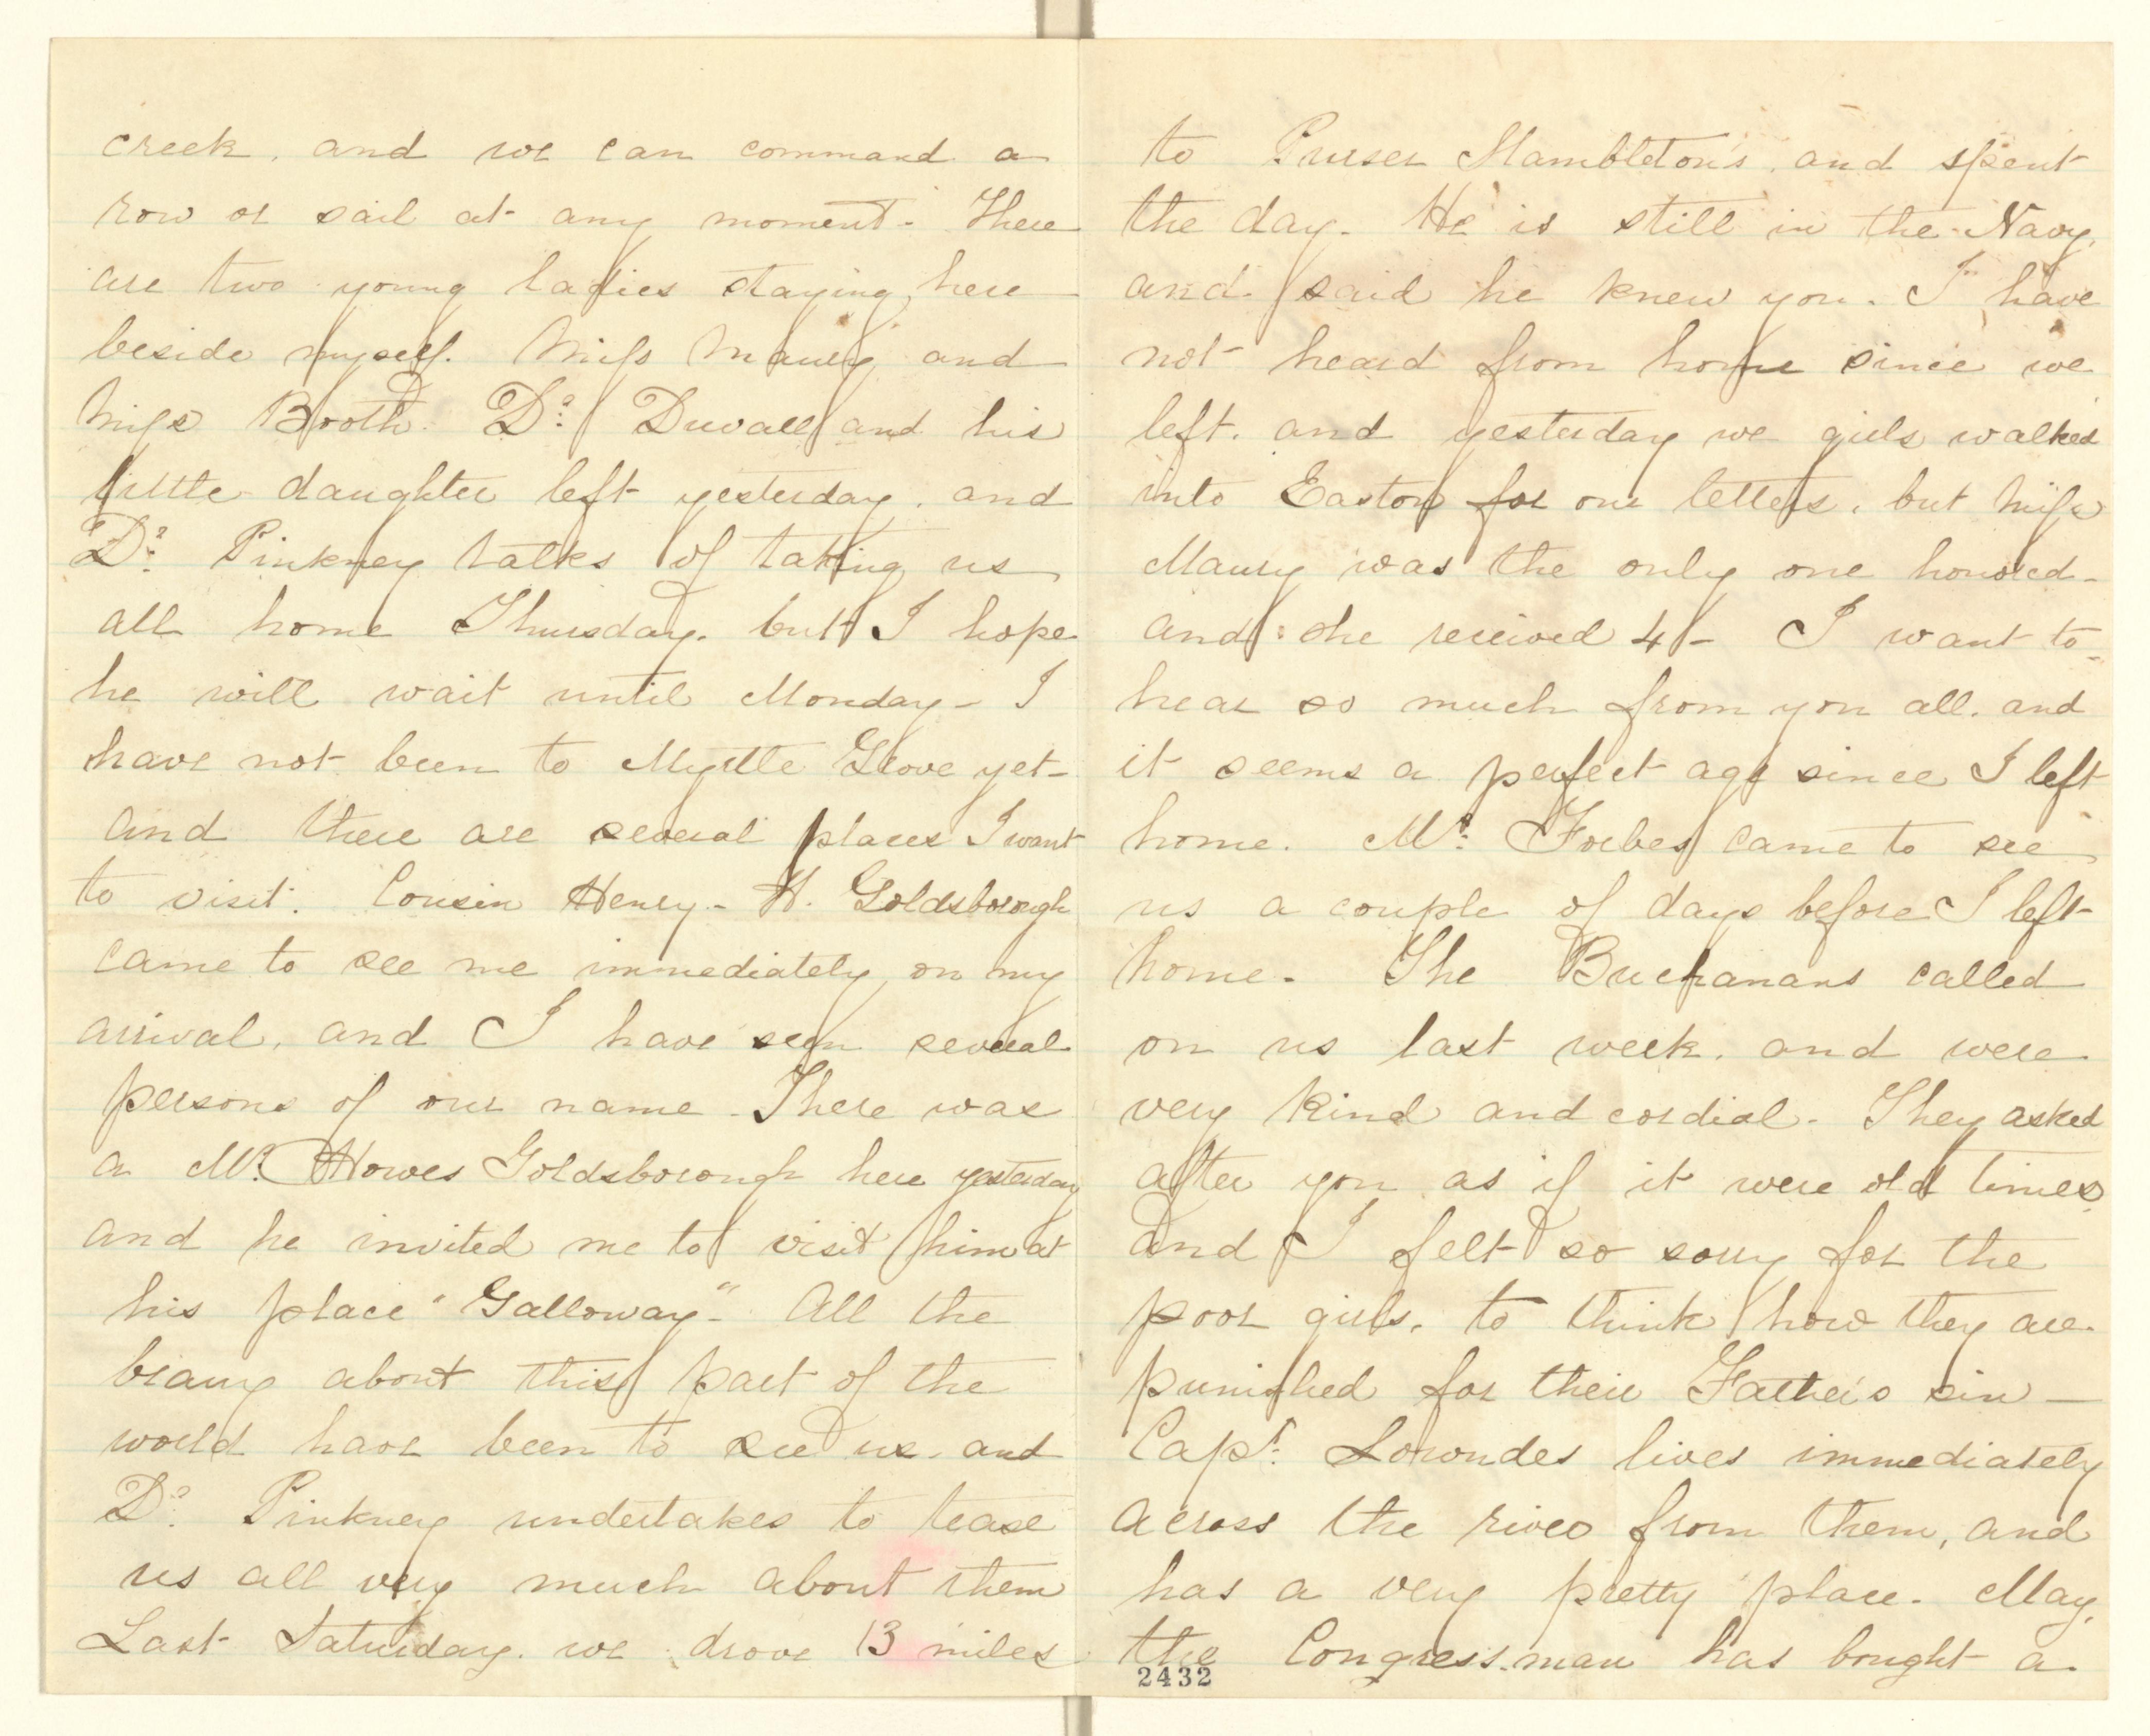 creek, and we can command a
row or sail at any moment - There
are two young ladies staying here
beside myself. Miss Maury and
Miss Booth. Dr. Duvall and his
little daughter left yesterday, and
Dr. Pinkney talks of taking us
all home Thursday, but I hope
he will wait until Monday - I
have not been to Myrtle Grove yet -
and there are several places I want
to visit. Cousin Henry - H. Goldsborough
came to see me immediately on my
arrival, and I have seen several
persons of our name - There was
a Mr. Howes Goldsborough here yesterday
and he invited me to visit him at
his place "Galloway" - All the
beaux about this part of the
world have been to see us, and
Dr. Pinkney undertakes to tease
us all very much about them
Last Saturday, we drove 13 miles
to Purser Hambleton's, and spent
the day - He is still in the Navy,
and said he knew you. I have
not heard from home since we
left, and yesterday we girls walked
into Easton for our letters, but Miss
Maury was the only one honored -
and she received 4 - I want to
hear so much from you all, and
it seems a perfect age since I left
home. Mr. Forbes came to see
us a couple of days before I left
home - The Buchanans called
on us last week, and were
very kind and cordial - They asked
after you as if it were old times
and I felt so sorry for the
poor girls, to think how they are
punished for their Father's sin —
Capt. Lowndes lives immediately
across the river from them, and
has a very pretty place - May,
the Congress-man has bought a
2432